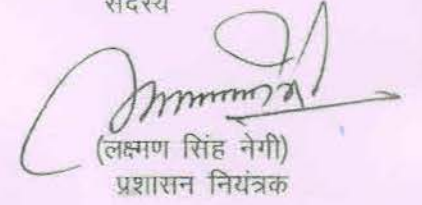 सदस्य
(लक्ष्मण सिंह नेगी)
प्रशासन नियंत्रक